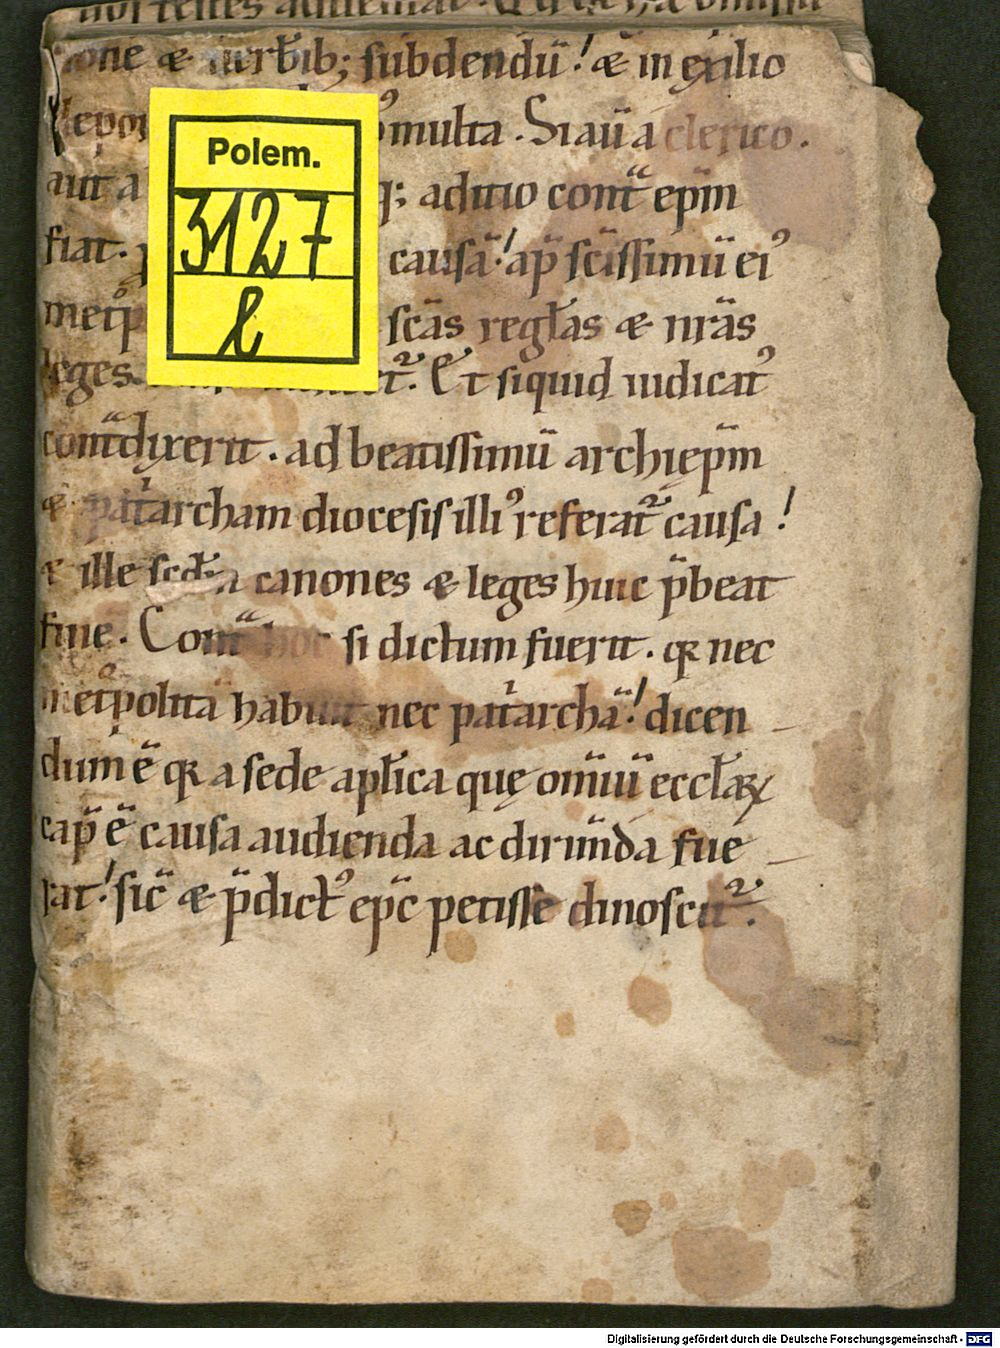 one & uerb̄ib; subdendū! & in exilio
multa . Si aū a clerico .
aut a q; aditio cont̄ ep̄m
fiat. causā! ap̄ sc̄issimū ei᾿
sc̄as regl̄as & nr̄as
leges. Et siquid iudicat᾿
cont̄dixerit . ad beatissimū archiep̄m
& pat̄archam diocesis illi᾿ referat᷑ causa!
& ille canones & leges huic p̄beat
fine. Cont̄ hoc si dictum fuerit . qꝛ nec
met̊politā habuit nec pat̄archā! dicen
dum ē qꝛ a sede apl̄ica quę om̄iū eccl̄aꝝ
cap̄ ē causa audienda ac dirim̄da fue
rat! sic̄ & p̄dict᾿ ep̄c petisse dinoscit᷑.
Polem.
3127
l
Digitalisierung gefördert durch die Deutsche Forschungsgemeinschaft - DFG